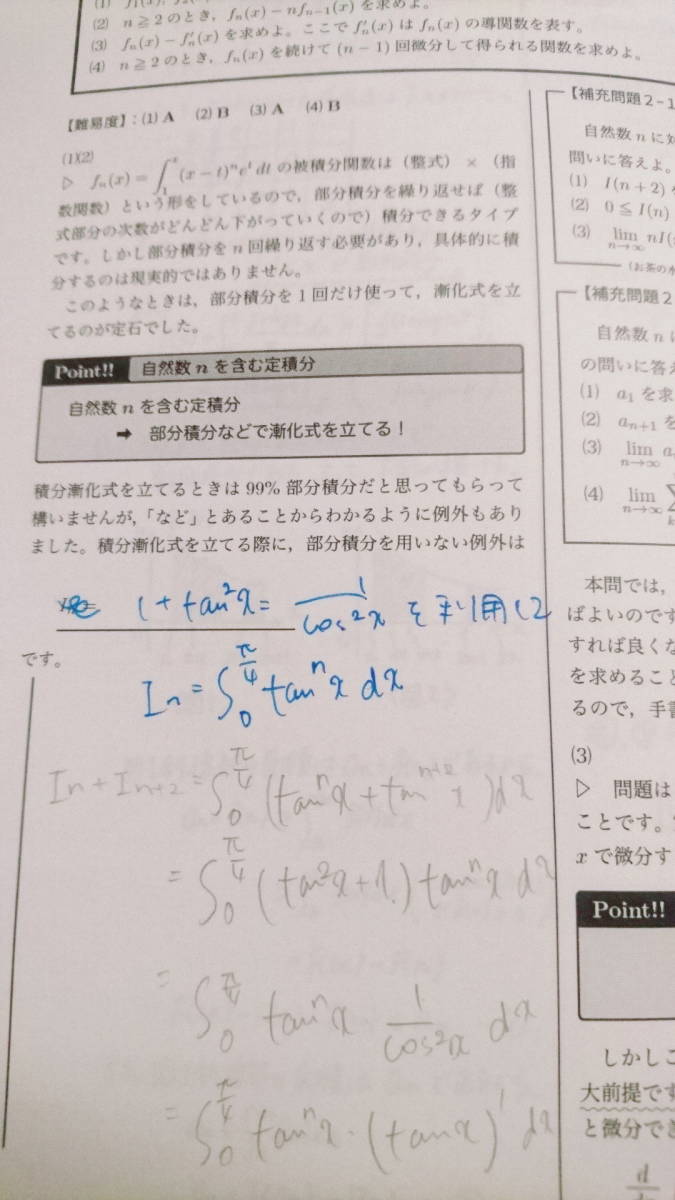 (2) n ≧ 2 のとき, fₙ(x) − nfₙ₋₁(x) を求めよ.
(3) fₙ(x) − f′ₙ(x) を求めよ. ここで f′ₙ(x) は fₙ(x) の導関数を表す.
(4) n ≧ 2 のとき, fₙ(x) を続けて (n − 1) 回微分して得られる関数を求めよ.
【難易度】: (1) A (2) B (3) A (4) B
(1)(2)
▷ fₙ(x) = ∫₁ˣ (x − t)ⁿeᵗ dt の被積分関数は (整式) × (指
数関数) という形をしているので, 部分積分を繰り返せば (整
式部分の次数がどんどん下がっていくので) 積分できるタイプ
です. しかし部分積分を n 回繰り返す必要があり, 具体的に積
分するのは現実的ではありません.
このようなときは, 部分積分を 1 回だけ使って, 漸化式を立
てるのが定石でした.
Point!! 自然数 n を含む定積分
自然数 n を含む定積分
➡ 部分積分などで漸化式を立てる!
積分漸化式を立てるときは 99% 部分積分だと思ってもらって
構いませんが,「など」とあることからわかるように例外もあり
ました. 積分漸化式を立てる際に, 部分積分を用いない例外は
1 + tan²x = 1/cos²x を利用して
です.
Iₙ = ∫₀^(π/4) tanⁿx dx
Iₙ + Iₙ₊₂ = ∫₀^(π/4) (tanⁿx + tanⁿ⁺²x) dx
= ∫₀^(π/4) (tan²x + 1) tanⁿx dx
= ∫₀^(π/4) tanⁿx 1/cos²x dx
= ∫₀^(π/4) tanⁿx · (tanx)′ dx
【補充問題 2-1
自然数 n に対
問いに答えよ.
(1) I(n + 2)
(2) 0 ≦ I(n)
(3) lim n→∞ nI(
(お茶の水
【補充問題 2
自然数 n に
の問いに答え
(1) a₁ を求
(2) aₙ₊₁ を
(3) lim n→∞ a
(4) lim n→∞ Σ
本問では,
ばよいのです
すれば良くな
を求めること
るので, 手書
(3)
▷ 問題は
ことです.
x で微分す
Point!!
しかしこ
大前提です
と微分でき
d